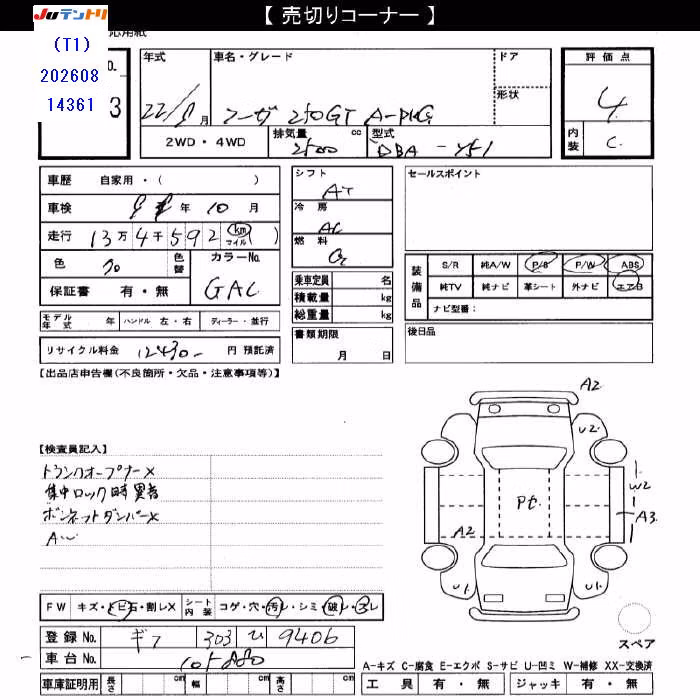 【 売切りコーナー 】
Juテントリ
(T1)
202608
14361
3
年式
22/8月
車名・グレード
フーガ 250GT A-PKG
ドア
形状
評価点
4
内装
C
2WD・4WD
排気量 cc
2500
型式
DBA-Y51
車歴 自家用・( )
車検 年 10 月
走行 13万4千592 km マイル ( )
色
色替
カラーNo.
GAC
保証書 有・無
モデル年式 年 ハンドル 左・右 ディーラー・並行
リサイクル料金 12430- 円 預託済
シフト
AT
冷房
AC
燃料
乗車定員 名
積載量 kg
総重量 kg
書類期限
月 日
セールスポイント
装備品
S/R 純A/W P/S P/W ABS
純TV 純ナビ 革シート 外ナビ エアB
ナビ型番:
後日品
【出品店申告欄(不良箇所・欠品・注意事項等)】
【検査員記入】
トランクオープナー×
集中ロック時異音
ボンネットダンパー×
A2
U2
W2
Pt.
A3
A2
U1
U1
スペア
FW キズ・トビ石・割レX シート内装 コゲ・穴・汚レ・シミ・破レ・スレ
登録No. ギフ 303 ひ 9406
車台No.
車庫証明用 長さ cm 幅 cm 高さ cm
A-キズ C-腐食 E-エクボ S-サビ U-凹ミ W-補修 XX-交換済
工具 有・無 ジャッキ 有・無